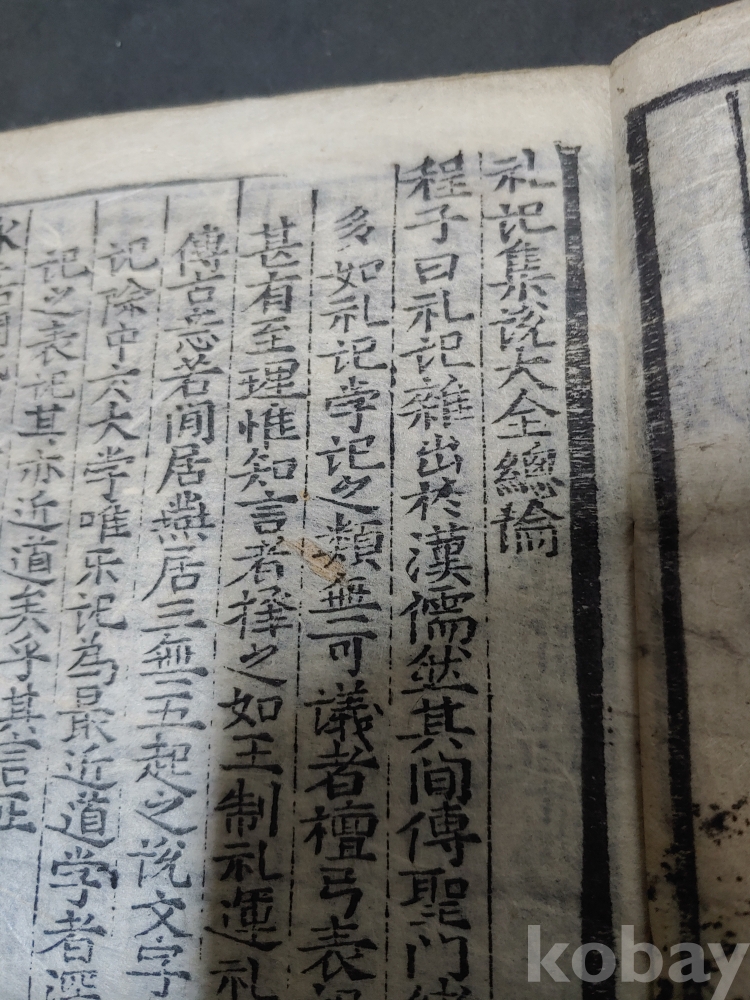 礼記集說大全總論
程子曰礼記雜出於漢儒然其間傳聖門緒
多如礼記学記之類無可議者檀弓表記
甚有至理惟知言者擇之如王制礼運礼
傳古意若间居燕居三無五起之說文字
記除中六大学唯乐記為最近道学者深
記之表記其亦近道矣乎其言正
kobay